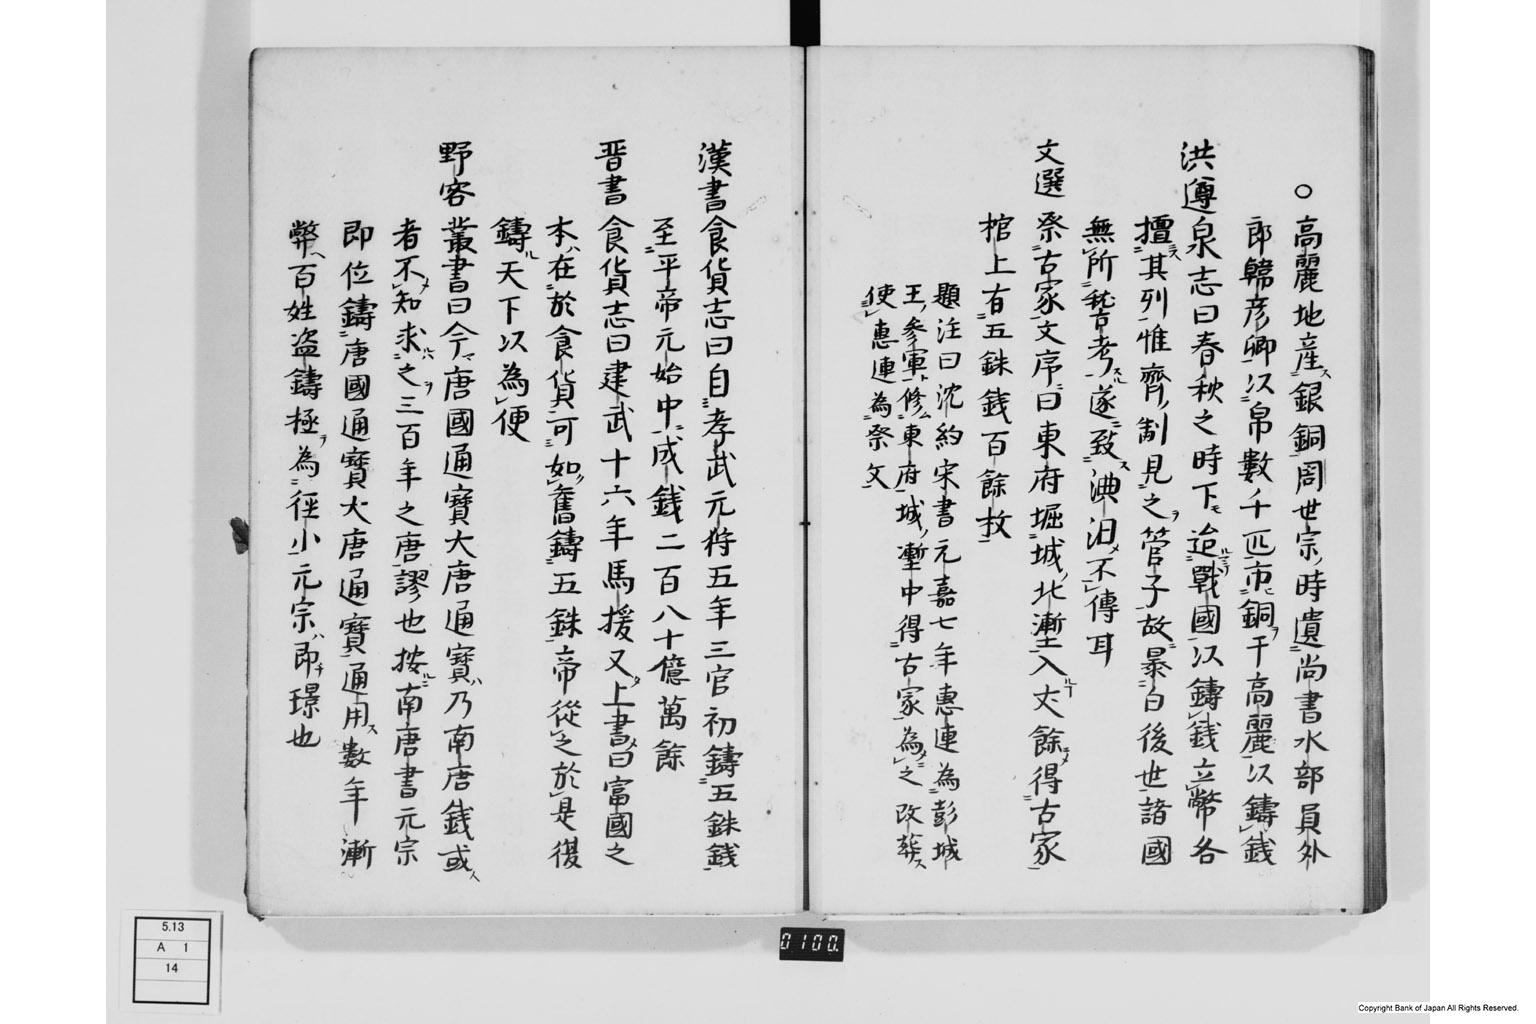 ○高麗地産銀銅周世宗時遺尚書水部員外
郎韓彦卿以帛数千匹市銅于高麗以鑄錢
洪遵泉志曰春秋之時下迨戰國以鑄錢立幣各
擅其列惟齊制見之管子故暴白後世諸國
無所稽考遂致淟汨不傳耳
文選 祭古冢文序曰東府堀城北塹入丈餘得古冢
棺上有五銖錢百餘枚
題注曰沈約宋書元嘉七年惠連為彭城
王參軍修東府城塹中得古冢為之改葬
使惠連為祭文
漢書食貨志曰自孝武元狩五年三官初鑄五銖錢
至平帝元始中成錢二百八十億萬餘
晋書 食貨志曰建武十六年馬援又上書曰富國之
本在於食貨可如舊鑄五銖帝從之於是復
鑄天下以為便
野客叢書曰今唐國通寶大唐通寶乃南唐錢或
者不知求之三百年之唐謬也按南唐書元宗
即位鑄唐國通寶大唐通寶通用数年漸
弊百姓盗鑄極為徑小元宗即璟也
5.13
A 1
14
0100.
Copyright Bank of Japan All Rights Reserved.